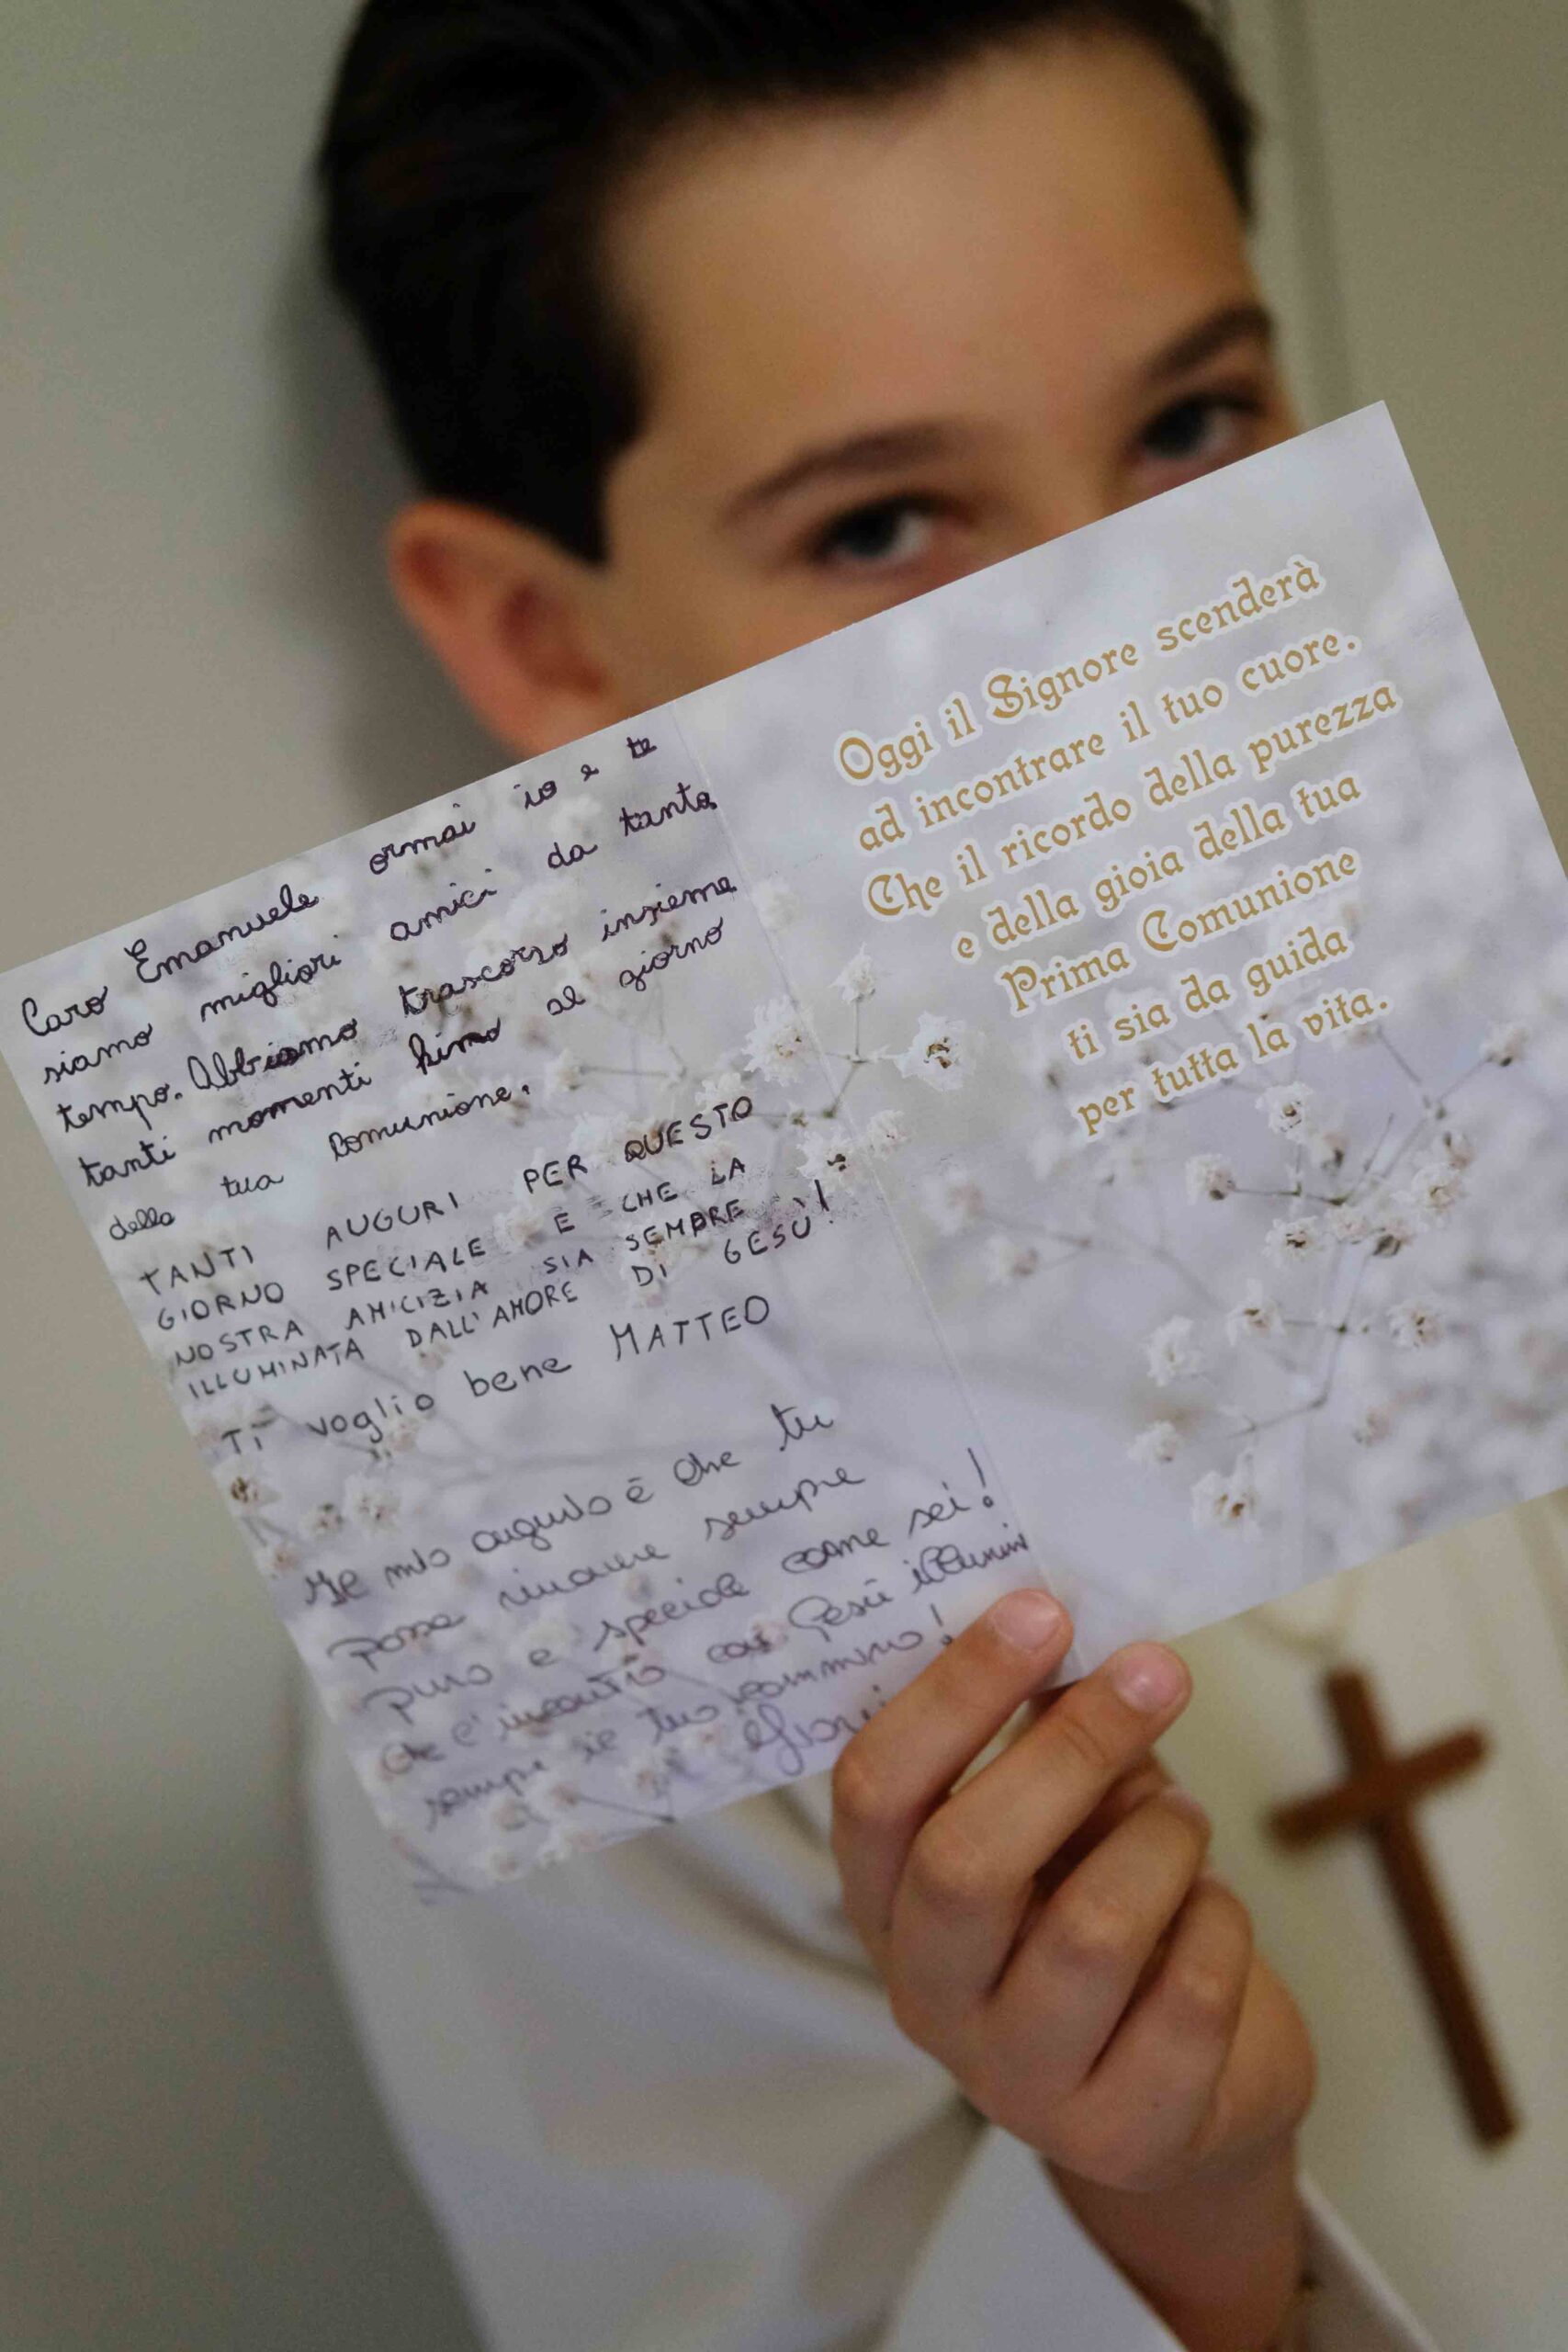 Caro Emanuele ormai io e te
siamo migliori amici da tanto
tempo. Abbiamo trascorso insieme
tanti momenti fino al giorno
della tua Comunione.
TANTI AUGURI PER QUESTO
GIORNO SPECIALE E CHE LA
NOSTRA AMICIZIA SIA SEMPRE
ILLUMINATA DALL'AMORE DI GESÙ!
Ti voglio bene MATTEO
Il mio augurio è che tu
possa rimanere sempre
puro e speciale come sei!
Che l'incontro con Gesù illumini
sempre il tuo cammino!
Oggi il Signore scenderà
ad incontrare il tuo cuore.
Che il ricordo della purezza
e della gioia della tua
Prima Comunione
ti sia da guida
per tutta la vita.